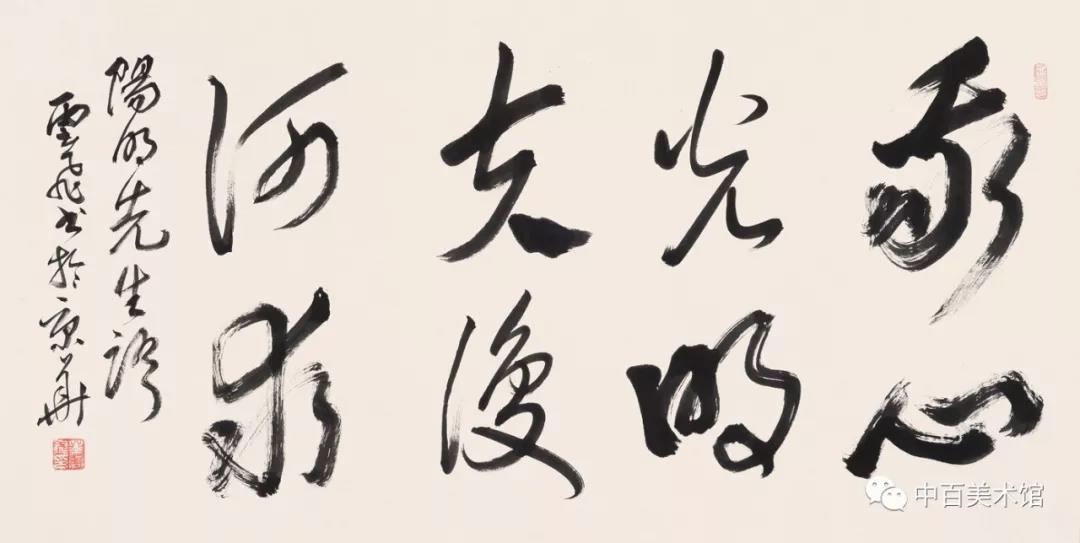 我心
光明
夫復
何求
陽明先生語
雲飛书於京華
中百美术馆